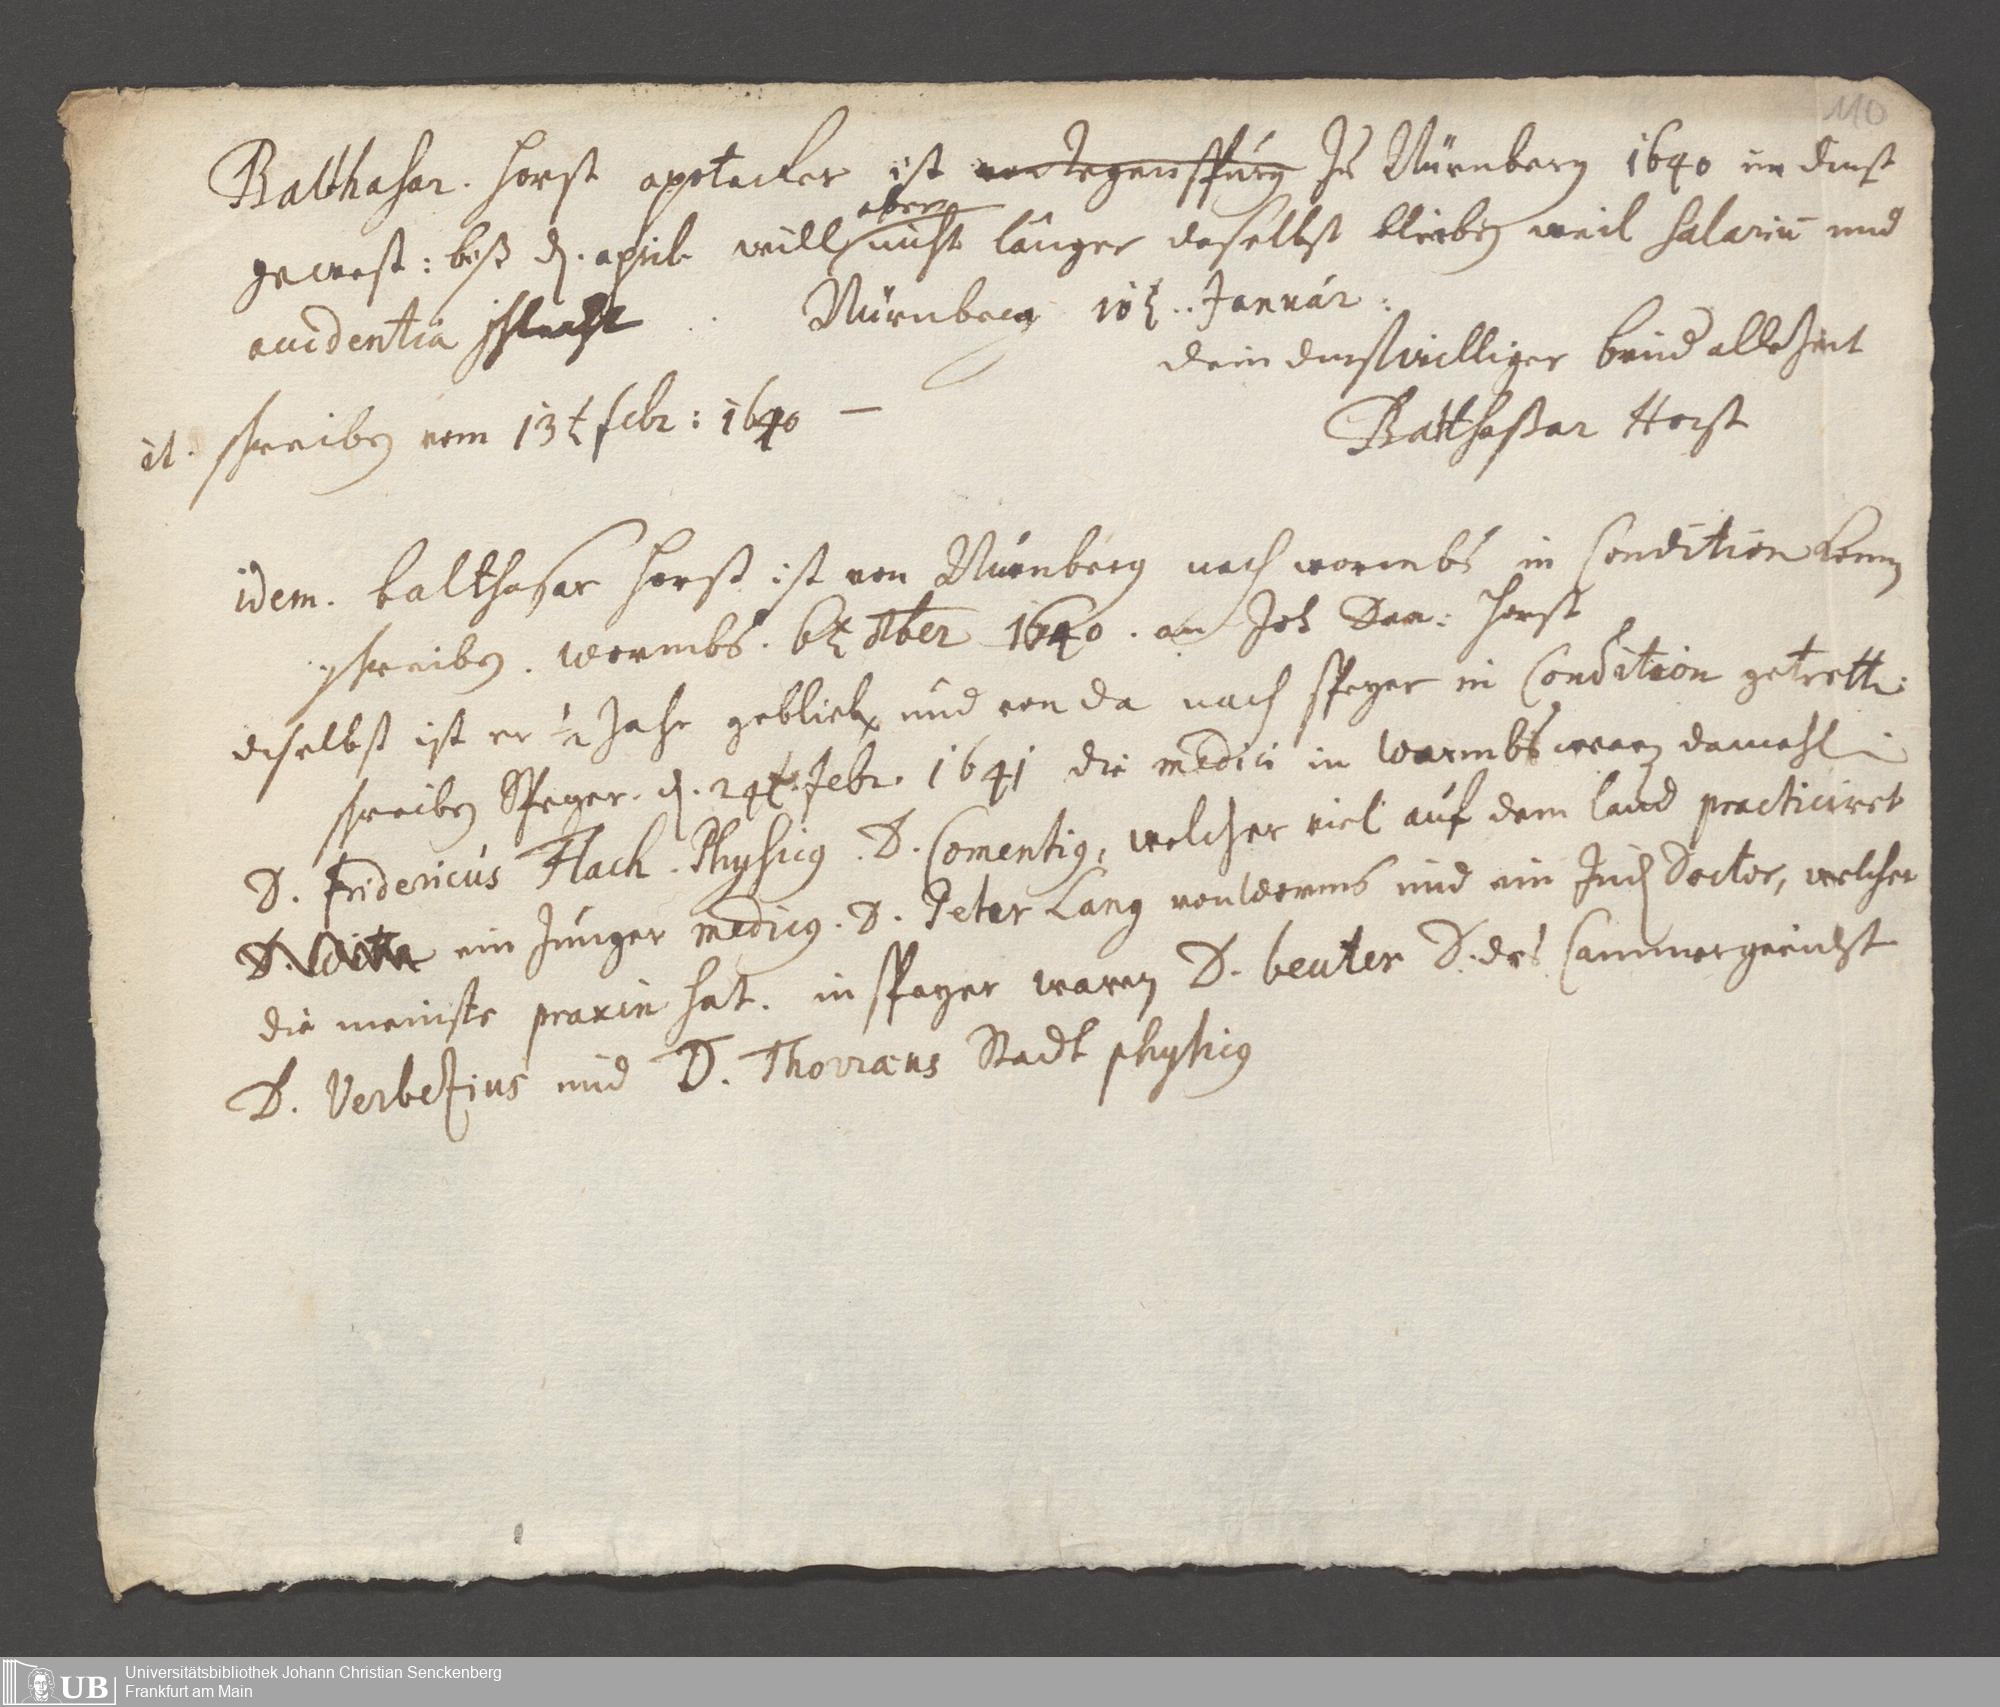 110
Balthasar. Horst apotecker ist von Regenspurg Zu Nürnberg 1640 in dinst
gewest: biß d. april. will aber nicht länger daselbst bleiben weil salariū und
accidentia schlecht. Nürnberg 10t. Januar:
dein dinstwilliger bruder allezeit
it. schreiben vom 13t febr: 1640 —
Balthaßar Horst
idem. balthasar Horst ist von Nürnberg nach wormbs in Condition kommen
schreiben. wormbs. 6t 1640. an Joh Dan: Horst
daselbst ist er ½ Jahr geblieben und von da nach speyer in Condition getretten
schreiben Speyer. d. 24t. febr. 1641 die medici in wormbs waren damahl
D. Fridericus Flach. Physicus. D. Comentius, welcher viel auf dem land practiciret
D. ein Junger medicus. D. Peter Lang von worms und ein Jud Doctor, welcher
die meinste praxin hat. in speyer waren D. beuter D. des Cammergericht
D. Verbezius und D. Thorræus Stadt physicus
UB Universitätsbibliothek Johann Christian Senckenberg
Frankfurt am Main